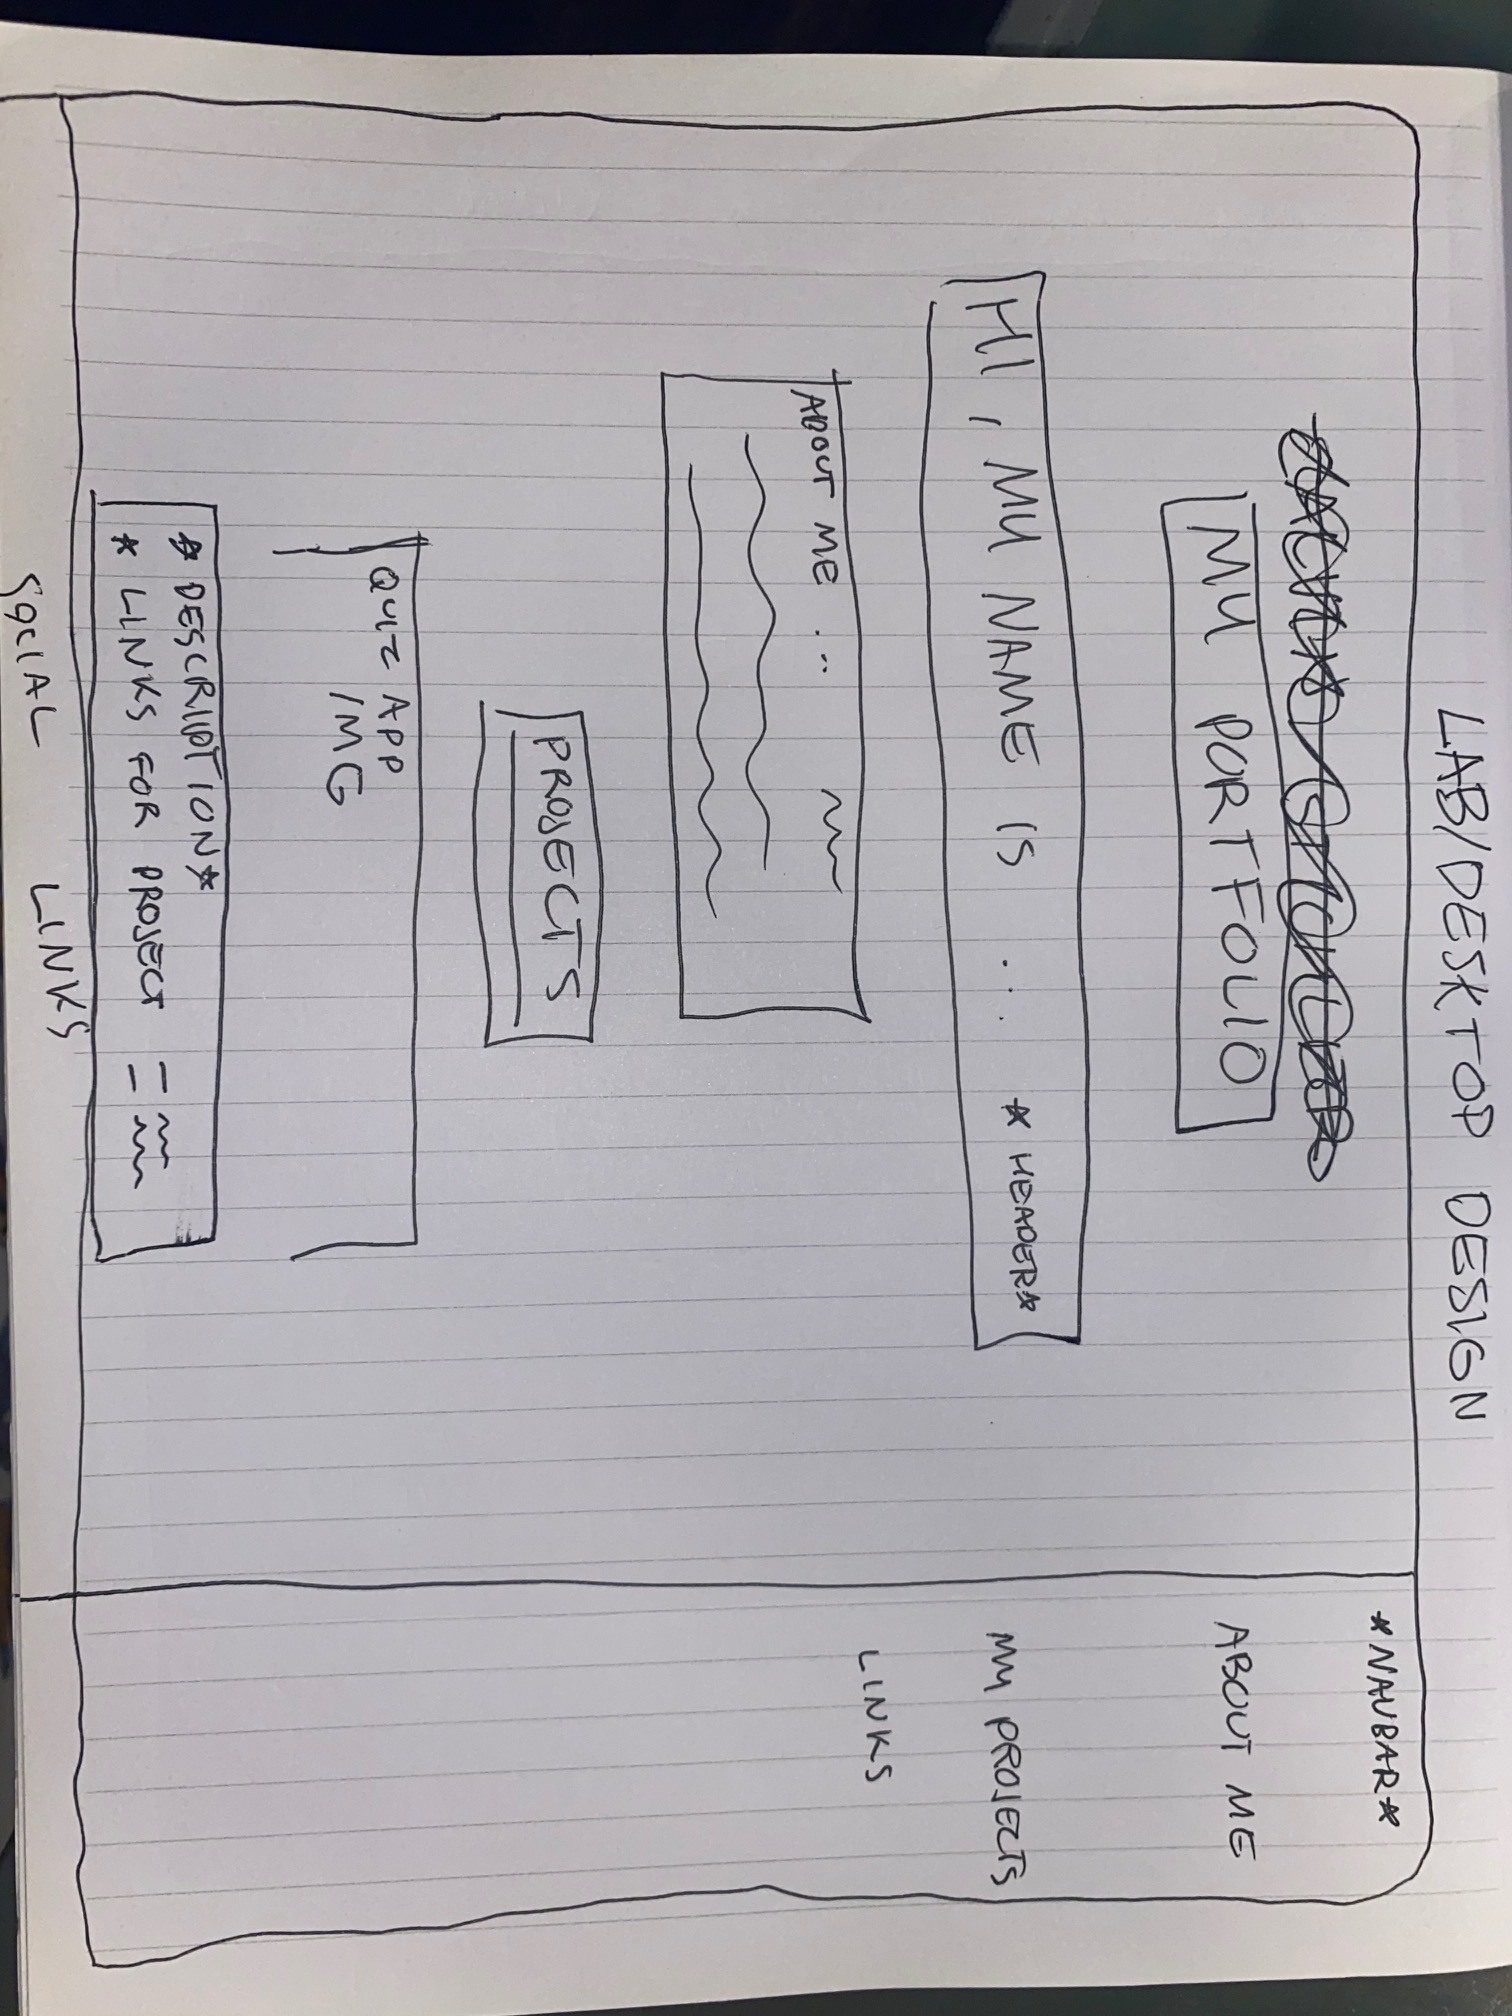 LAB/DESKTOP DESIGN
MY PORTFOLIO
HI, MY NAME IS ... *HEADER*
ABOUT ME ...
PROJECTS
QUIZ APP
IMG
*DESCRIPTION*
* LINKS FOR PROJECT
SOCIAL LINKS
*NAVBAR*
ABOUT ME
MY PROJECTS
LINKS